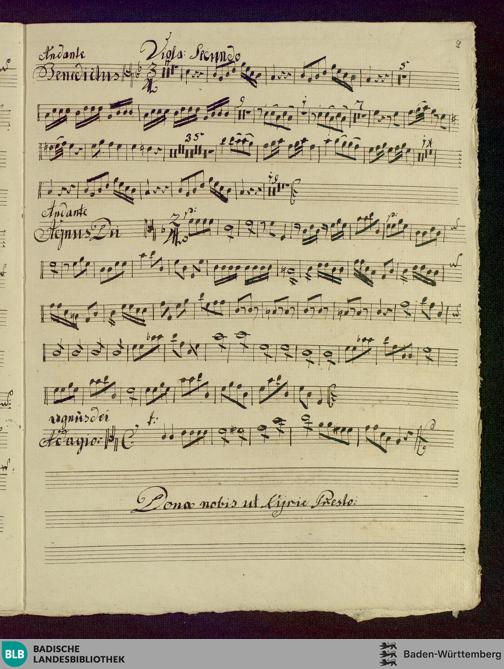 2
Andante
Viola: Secundo
Benedictus
5
9
7
35
18
Andante
2
p:
Agnus Dei
p:
agnus dei
f:
Adagio:
Dona nobis ut Kyrie Presto:
BLB
BADISCHE
LANDESBIBLIOTHEK
Baden-Württemberg